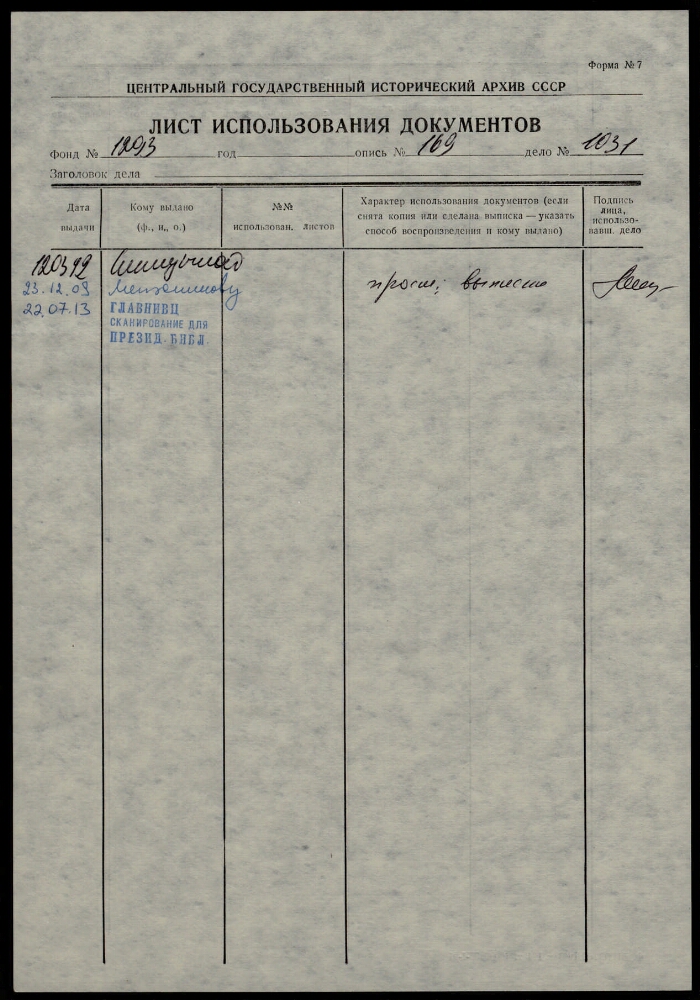 Форма № 7
ЦЕНТРАЛЬНЫЙ ГОСУДАРСТВЕННЫЙ ИСТОРИЧЕСКИЙ АРХИВ СССР
ЛИСТ ИСПОЛЬЗОВАНИЯ ДОКУМЕНТОВ
Фонд № 1293 год опись № 169 дело № 1031
Заголовок дела
Дата выдачи
Кому выдано (ф., и., о.)
№№ использован. листов
Характер использования документов (если снята копия или сделана выписка — указать способ воспроизведения и кому выдано)
Подпись лица, использовавш. дело
120392
23.12.09 просм;
22.07.13 ГЛАВНИВЦ
СКАНИРОВАНИЕ ДЛЯ
ПРЕЗИД-БИБЛ.